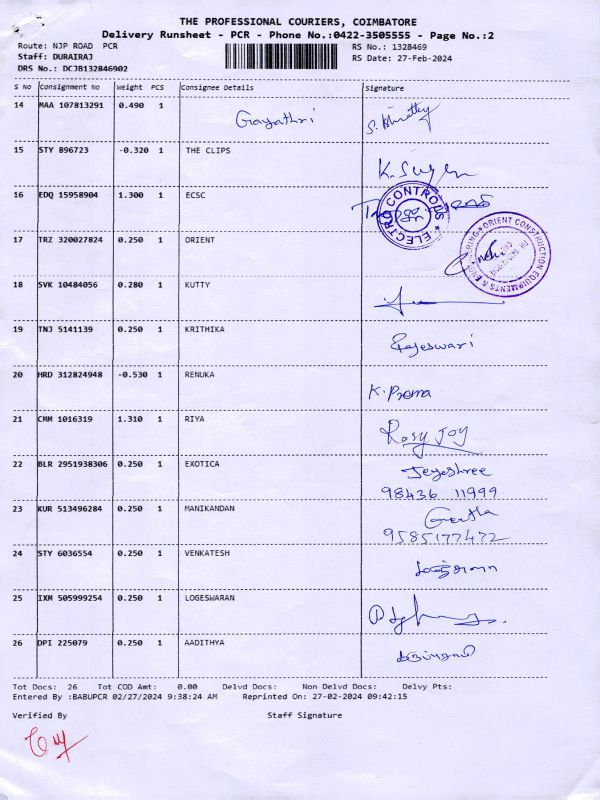 THE PROFESSIONAL COURIERS, COIMBATORE
Delivery Runsheet - PCR - Phone No.:0422-3505555 - Page No.:2
Route: NJP ROAD PCR RS No.: 1328469
Staff: DURAIRAJ RS Date: 27-Feb-2024
DRS No.: DCJB132846902
S No Consignment No Weight PCS Consignee Details Signature
14 MAA 107813291 0.490 1 Gayathri
15 STY 896723 -0.320 1 THE CLIPS
16 EDQ 15958904 1.300 1 ECSC
ELECTRO CONTROLS
17 TRZ 320027824 0.250 1 ORIENT
ORIENT CONSTRUCTION EQUIPMENTS &
18 SVK 10484056 0.280 1 KUTTY
19 TNJ 5141139 0.250 1 KRITHIKA Rajeswari
20 HRD 312824948 -0.530 1 RENUKA K. Prema
21 CMM 1016319 1.310 1 RIYA Rosy Joy
22 BLR 2951938306 0.250 1 EXOTICA Jeyashree
98436 11999
23 KUR 513496284 0.250 1 MANIKANDAN Geetha
9585177472
24 STY 6036554 0.250 1 VENKATESH
25 IXM 505999254 0.250 1 LOGESWARAN
26 DPI 225079 0.250 1 AADITHYA
Tot Docs: 26 Tot COD Amt: 0.00 Delvd Docs: Non Delvd Docs: Delvy Pts:
Entered By :BABUPCR 02/27/2024 9:38:24 AM Reprinted On: 27-02-2024 09:42:15
Verified By Staff Signature